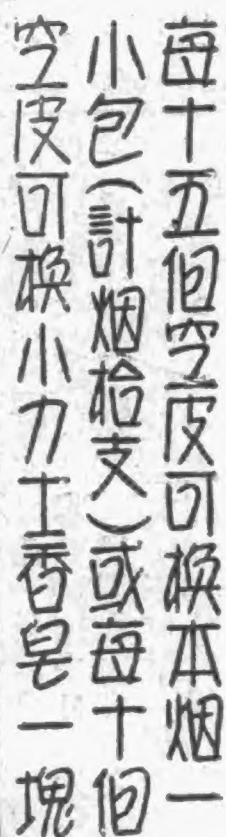 每十五個空皮可換本烟一
小包(計烟拾支)或每十個
空皮可換小力士香皂一塊